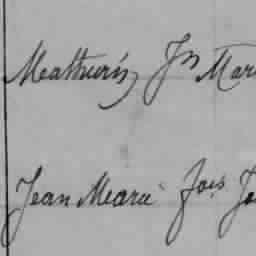 Mathurin Jn Mar
Jean Marie fois Jo